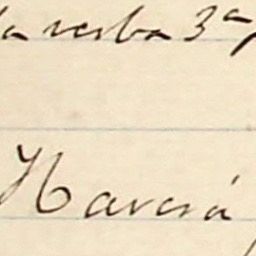 la verba 3ª,
Haverá